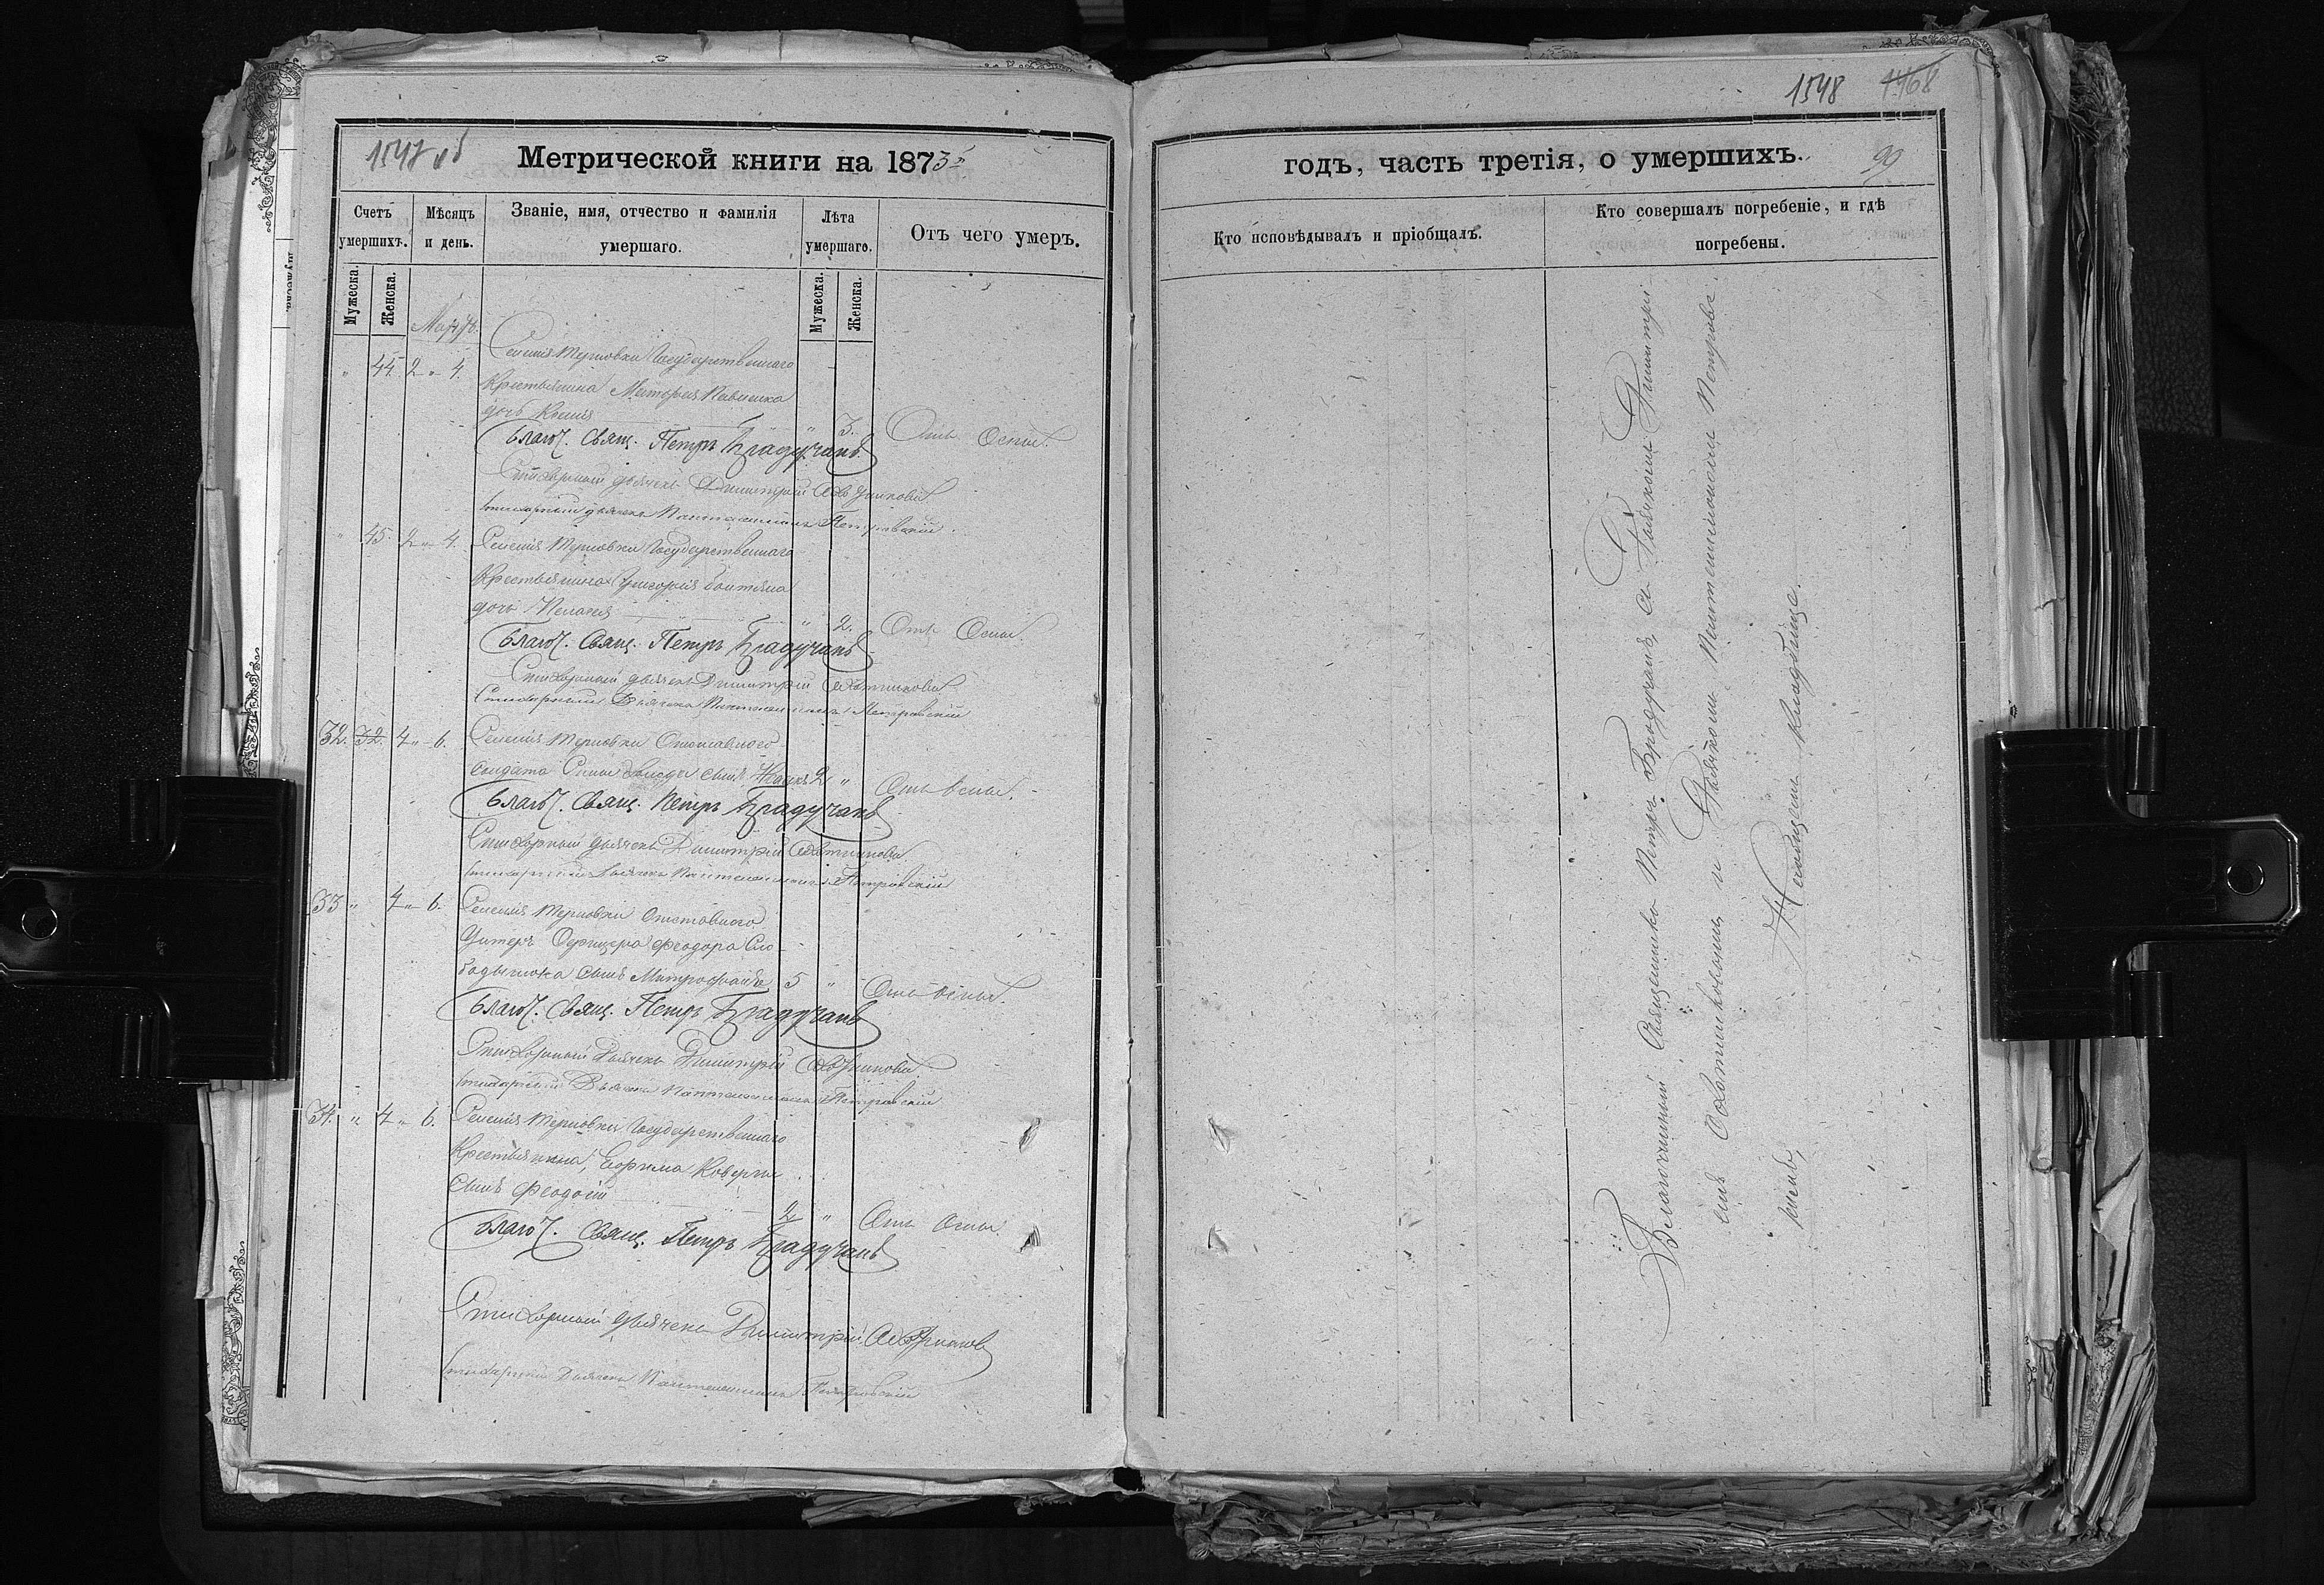 1547 об
Метрической книги на 1873й
Счетъ умершихъ.
Мѣсяцъ и день.
Званіе, имя, отчество и фамилія умершаго.
Лѣта умершаго.
Отъ чего умеръ.
Мужеска.
Женска.
Мужеска.
Женска.
Мартъ.
" 44. 2 " 4. Селенія Терновки Государственнаго
Крестьянина
дочь " 3. Отъ Оспы.
Благоч. Свящ. Петръ Брадучанъ
Стихарный дьячекъ Димитрій
Стихарный дьячекъ Пантелеимонъ Петровскій.
" 45. 2 " 4. Селенія Терновки Государственнаго
Крестьянина Григорія
дочь Пелагея " 2. Отъ Оспы.
Благоч. Свящ. Петръ Брадучанъ
Стихарный дьячекъ Димитрій
Стихарный Дьячекъ Пантелеимонъ Петровскій
32. 32. 4 " 6. Селенія Терновки Отставного
солдата сынъ 2 " Отъ оспы.
Благоч. Свящ. Петръ Брадучанъ
Стихарный дьячекъ Димитрій
Стихарный Дьячекъ Пантелеимонъ Петровскій
33 " 4 " 6. Селенія Терновки Отставного
Унтеръ Офицера Феодора Сло-
бодянюка сынъ Митрофанъ 5 " Отъ оспы.
Благоч. Свящ. Петръ Брадучанъ
Стихарный Дьячекъ Димитрій
Стихарный Дьячекъ Пантелеимонъ Петровскій
34. " 4 " 6. Селенія Терновки Государственнаго
Крестьянина, Ефрема
сынъ Феодосій 2 " Отъ Оспы
Благоч. Свящ. Петръ Брадучанъ
Стихарный дьячекъ Димитрій
Стихарный Дьячекъ Пантелеимонъ Петровскій
1548 1468
годъ, часть третія, о умершихъ.
99
Кто исповѣдывалъ и пріобщалъ.
Кто совершалъ погребеніе, и гдѣ погребены.
Благочинный Священникъ Петръ Брадучанъ, съ Дьячкомъ Димитрі-
емъ и Дьячкомъ Пантелеимономъ Петровс-
кимъ,
На общемъ кладбищѣ.